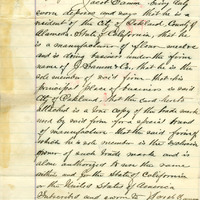 Jacob Samm being duly
sworn deposes and says that he is a
resident of the City of Oakland, County of
Alameda State of California, that he
is a manufacturer of
and is doing business under the firm
name of J. Samm & Co. that he is the
sole member of said firm that his
principal place of business is said
City of Oakland, that the Card hereto
attached is a true copy of the trade mark
used by said firm for a special brand
of manufacture that the said firm of
which he is sole member is the exclusive
owner of such trade mark and is
alone authorized to use the same
within and for the State of California
or the United States of America
Subscribed and sworn to